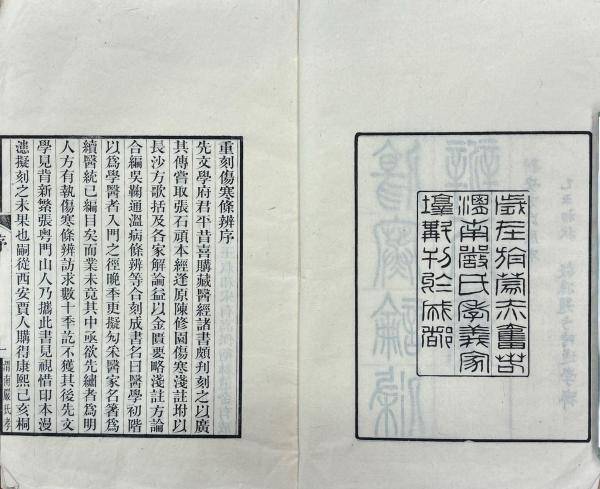 歲在旃蒙赤奮若
渭南嚴氏孝義家
塾斠刊於成都
重刻傷寒條辨序
先文學府君平昔喜購藏醫經諸書頗刊刻之以廣
其傳嘗取張石頑本經逢原陳修園傷寒淺註坿以
長沙方歌括及各家解論益以金匱要略淺註方論
合編吳鞠通溫病條辨等合刻成書名曰醫學初階
以爲學醫者入門之徑晚季更擬匄宋醫家名著爲
續醫統已編目矣而業未竟其中亟欲先繡者爲明
人方有執傷寒條辨訪求數十季訖不獲其後先文
學見背新繁張粤門山人乃攜此書見視惜印本漫
漶擬刻之未果也嗣從西安賈人購得康熙己亥桐
序
一
渭南嚴氏孝